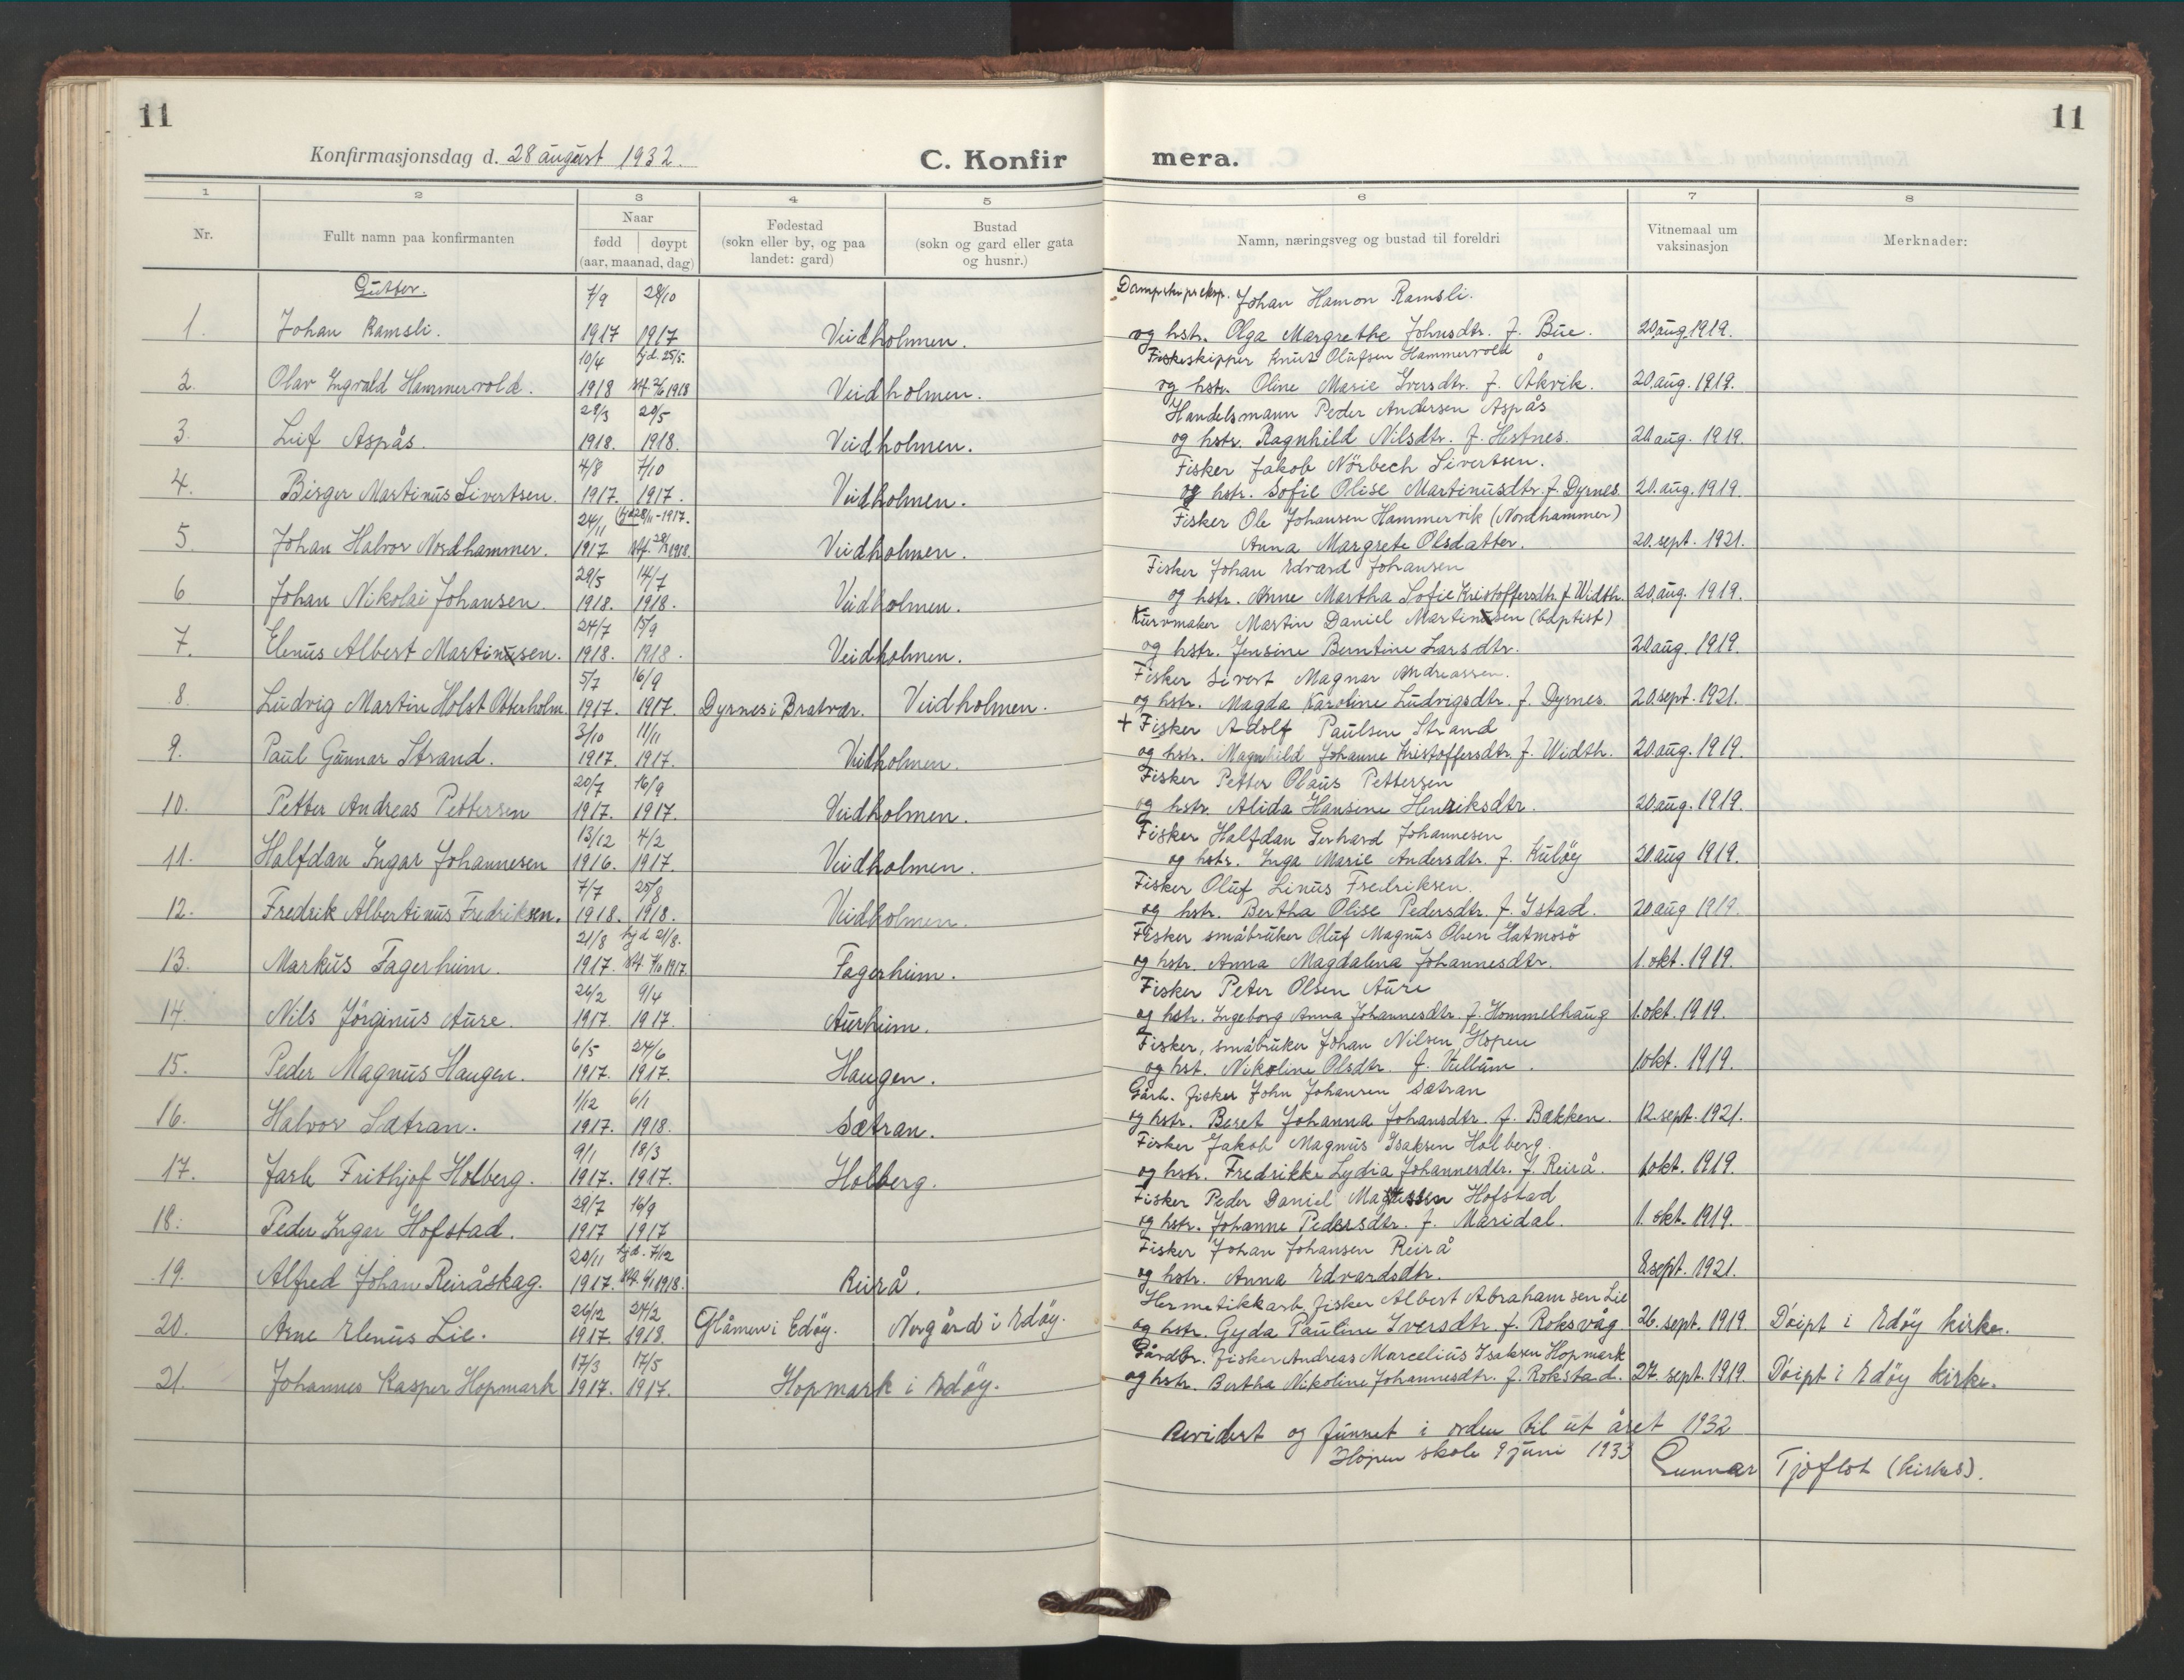 11
11
Konfirmasjonsdag d. 28 august 1932.
C. Konfir
mera.
1 2 3 4 5 6 7 8
Nr.
Fullt namn paa konfirmanten
Naar
fødd | døypt
(aar, maanad, dag)
Fødestad
(sokn eller by, og paa
landet: gard)
Bustad
(sokn og gard eller gata
og husnr.)
Namn, næringsveg og bustad til foreldri
Vitnemaal um
vaksinasjon
Merknader:
Gutter.
7/9 28/10 Dampskipseksp. Johan Hamon Ramsli.
1. Johan Ramsli. 1917 1917 Veidholmen. og hstr. Olga Margrethe Johnsdtr. f. Bue. 20 aug. 1919.
10/4 hjd. 25/5. Fiskeskipper Knut Olufsen Hammervold
2. Olav Ingvald Hammervold. 1918 1918 Veidholmen. og hstr. Oline Marie Iversdtr. f. Åkvik. 20. aug. 1919.
29/3 20/5 Handelsmann Peder Andersen Aspås
3. Leif Aspås. 1918. 1918. Veidholmen. og hstr. Ragnhild Nilsdtr. f. Hestnes. 20 aug. 1919.
4/8 7/10 Fisker Jakob Nörbech Sivertsen.
4. Birger Martinus Sivertsen. 1917. 1917. Veidholmen. og hstr. Sofie Olise Martinusdtr. f. Dyrnes. 20. aug. 1919.
24/11 hjd 28/11-1917. Fisker Ole Johansen Hammervik (Nordhammer)
5. Johan Halvor Nordhammer. 1917 1918. Veidholmen. Anna Margrete Olsdatter. 20. sept. 1921.
29/5 14/7 Fisker Johan Edvard Johansen
6 Johan Nikolai Johansen. 1918. 1918. Veidholmen. og hstr. Anne Martha Sofie Kristoffersdtr. f. Width. 20. aug. 1919.
24/7 15/9 Kurvmaker Martin Daniel Martinsen (baptist)
7. Elenus Albert Martinsen. 1918. 1918. Veidholmen. og hstr. Jensine Berntine Larsdtr. 20 aug. 1919.
5/7 16/9 Fisker Sivert Magnar Andreassen.
8. Ludvig Martin Holst Otterholm 1917. 1917. Dyrnes i Bratvær. Veidholmen. og hstr. Magda Karoline Ludvigsdtr. f. Dyrnes. 20. sept. 1921.
3/10 11/11 + Fisker Adolf Paulsen Strand
9. Paul Gunnar Strand. 1917. 1917. Veidholmen. og hstr. Magnhild Johanne Kristoffersdtr. f. Width. 20. aug. 1919.
20/7 16/9 Fisker Petter Olaus Pettersen
10. Petter Andreas Pettersen 1917. 1917. Veidholmen. og hstr. Alida Hansine Henriksdtr. 20 aug. 1919.
13/12 4/2 Fisker Halfdan Gerhard Johannesen
11. Halfdan Ingar Johannesen 1916. 1917. Veidholmen. og hstr. Inga Marie Andersdtr. f. Kulöy 20. aug 1919.
7/7 25/8 Fisker Oluf Linus Fredriksen.
12. Fredrik Albertinus Fredriksen. 1918. 1918. Veidholmen. og hstr. Bertha Olise Pedersdtr. f. Istad. 20 aug 1919.
21/8 hjd 21/8. Fisker småbruker Oluf Magnus Olsen Hatmosö
13. Markus Fagerheim. 1917. 1917. Fagerheim. og hstr. Anna Magdalena Johannesdtr. 1. okt. 1919.
26/2 9/4 Fisker Peter Olsen Aure
14. Nils Jörginus Aure. 1917. 1917. Aurheim. og hstr. Ingeborg Anna Johannesdtr. f. Hommelhaug 1. okt. 1919.
6/5 24/6 Fisker, småbruker Johan Nilsen Hopen
15. Peder Magnus Haugen. 1917. 1917. Haugen. og hst. Nikoline Olsdtr. f. Vullum. 1 okt. 1919.
1/12 6/1 Gårb. fisker John Johansen Sætran
16. Halvor Sætran. 1917. 1918. Sætran. og hstr. Beret Johanna Johansdtr. f. Bækken. 12. sept. 1921.
9/1 18/3 Fisker Jakob Magnus Isaksen Holberg.
17. Jarle Frithjof Holberg. 1917. 1917. Holberg. og hstr. Fredrikke Lydia Johannesdtr. f. Reirå. 1 okt. 1919.
29/7 16/9 Fisker Peder Daniel Hofstad
18. Peder Ingar Hofstad. 1917 1917 og hstr. Johanne Pedersdtr. f. Maridal. 1. okt. 1919.
20/11 hjd. 7/12 Fisker Johan Johansen Reirå
19. Alfred Johan Reiråskag. 1917. 1918. Reirå. og hstr. Anna Edvardsdtr. 8 sept. 1921.
26/12 24/2 Hermetikkarb. fisker Albert Abrahamsen Lie
20. Arne Elenus Lie. 1917 1918 Glåmen i Edöy. Norgård i Edöy. og hstr. Gyda Pauline Iversdtr. f. Roksvåg 26. sept. 1919. Döipt i Edöy kirke.
17/3 17/5 Gårdbr. fisker Andreas Marcelius Isaksen Hopmark
21. Johannes Kasper Hopmark 1917. 1917. Hopmark i Edöy. og hstr. Bertha Nikoline Johannesdtr. f. Rokstad. 27. sept. 1919. Döipt i Edöy kirke.
Revidert og funnet i orden til ut året 1932
Hopen skole 9 juni 1933 Gunnar Tjoflot